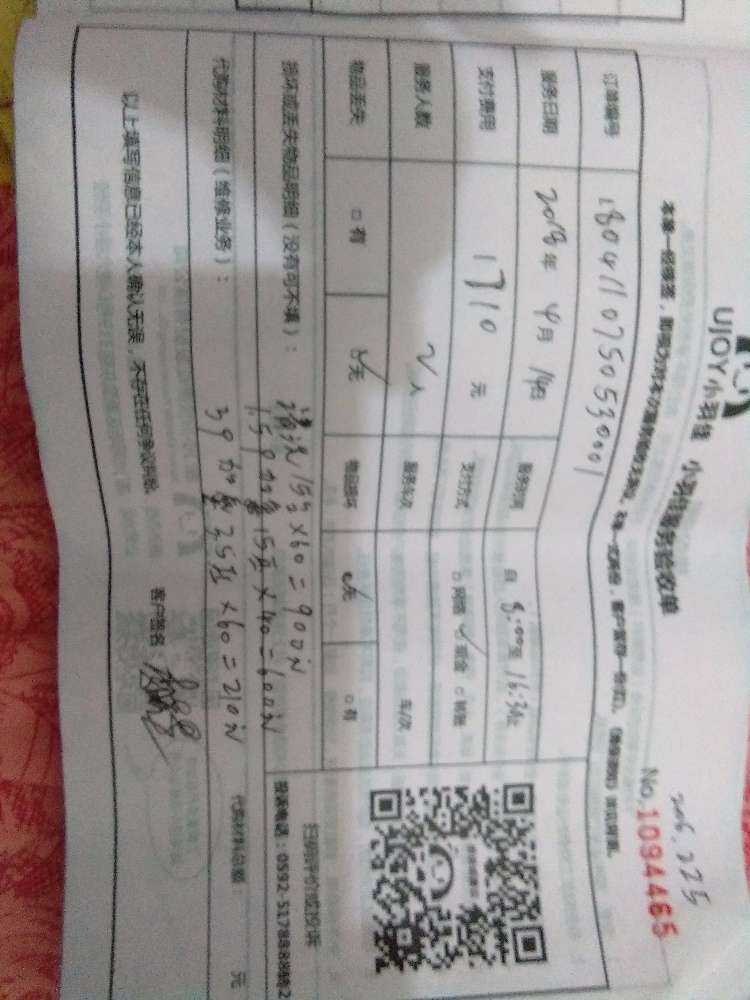 UJOY小羽佳 小羽佳服务验收单
No.1094465
206.225
订单编号 1804110750530001
服务日期 2018年 4月 14日 服务时间 自 8:00至 16:30止
支付费用 1710 元 支付方式 □网络 ✓现金 □转账
服务人数 2人 服务车次 车/次
物品丢失 □有 ☑无 物品损坏 ☑无 □有
损坏或丢失物品明细（没有可不填）： 清洗15台×60=900元
1.5P加氟15压×40=600元
代购材料明细（维修业务）： 3P加氟3.5压×60=210元 代购材料总额： 元
扫码评价或投诉
投诉电话：0592 5178888转2
以上填写信息已经本人确认无误，不存在任何争议纠纷。 客户签名：